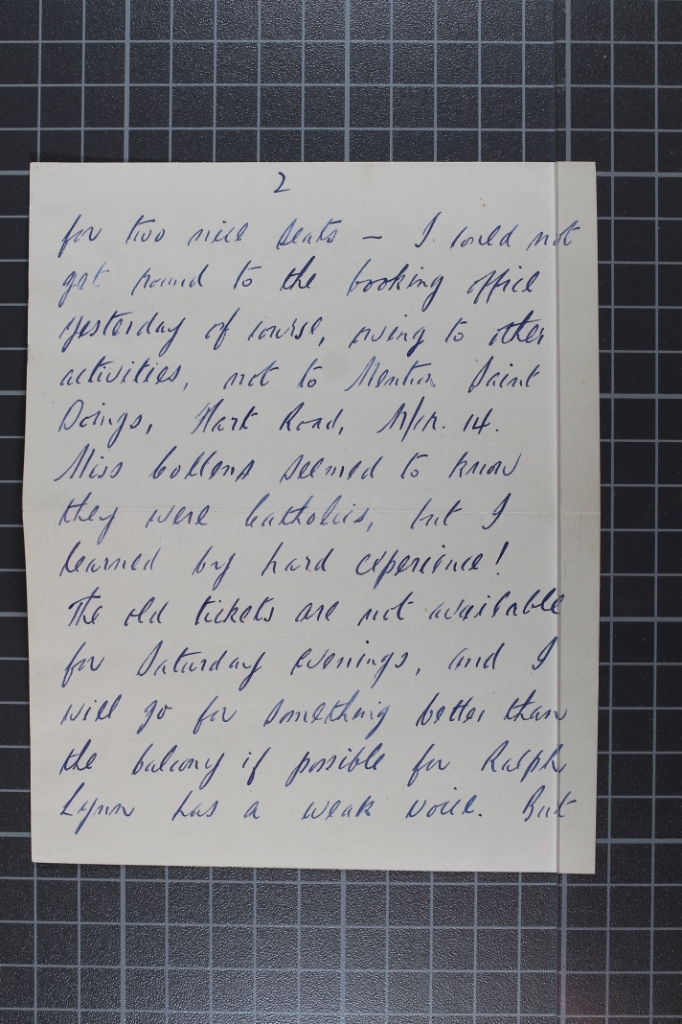 2
for two nice seats — I could not
get round to the booking office
yesterday of course, owing to other
activities, not to Mention Saint
Doings, Hart Road, M/cr. 14.
Miss Collens seemed to know
they were Catholics, but I
learned by hard experience!
The old tickets are not available
for Saturday evenings, and I
will go for something better than
the balcony if possible for Ralph
Lynn has a weak voice. But